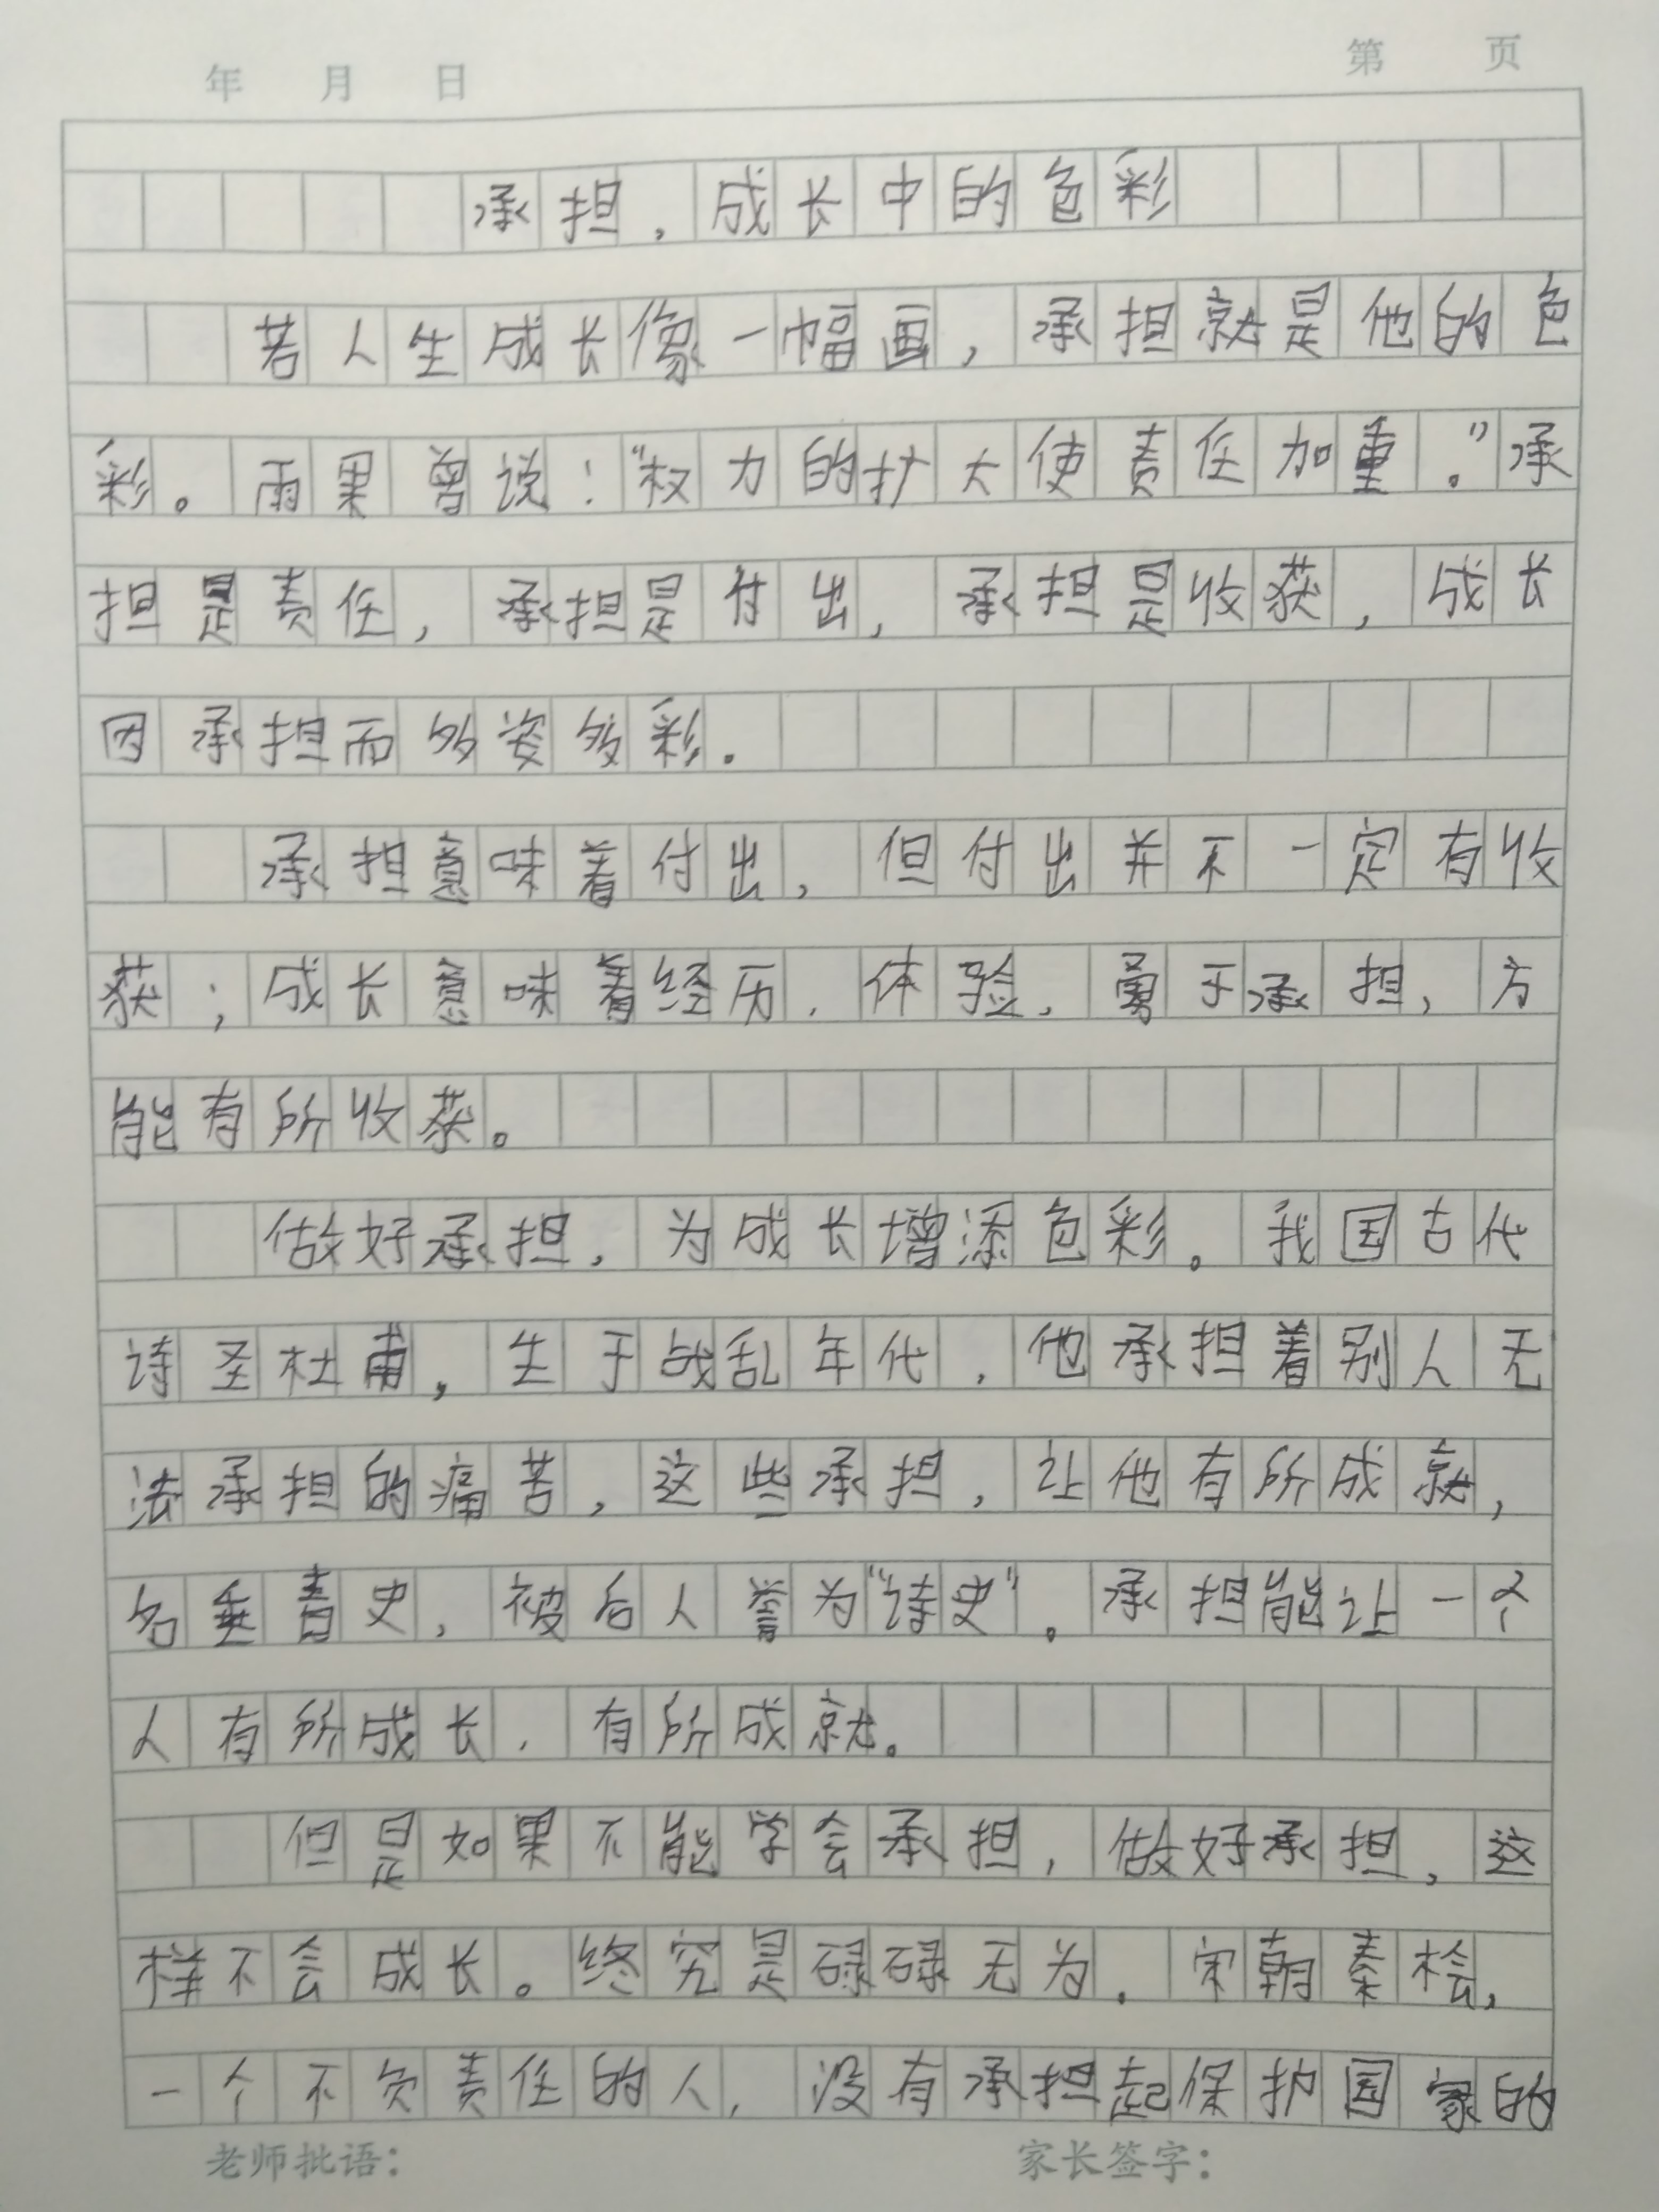 年 月 日 第 页
承担，成长中的色彩
若人生成长像一幅画，承担就是他的色
彩。雨果曾说：“权力的扩大使责任加重。”承
担是责任，承担是付出，承担是收获，成长
因承担而多姿多彩。
承担意味着付出，但付出并不一定有收
获；成长意味着经历，体验，勇于承担，方
能有所收获。
做好承担，为成长增添色彩。我国古代
诗圣杜甫，生于战乱年代，他承担着别人无
法承担的痛苦，这些承担，让他有所成就，
名垂青史，被后人誉为“诗史”。承担能让一个
人有所成长，有所成就。
但是如果不能学会承担，做好承担，这
样不会成长。终究是碌碌无为。宋朝秦桧，
一个不负责任的人，没有承担起保护国家的
老师批语： 家长签字：